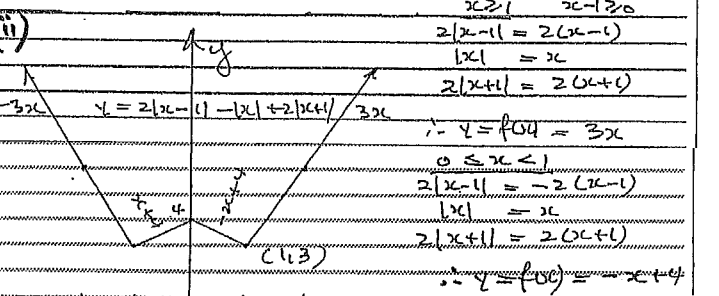 ii)
y
-3x
y = 2|x-1| -|x| +2|x+1|
3x
x+4
4
-x+4
(1,3)
x≥1 x-1≥0
2|x-1| = 2(x-1)
|x| = x
2|x+1| = 2(x+1)
∴ y = f(x) = 3x
0 ≤ x < 1
2|x-1| = -2(x-1)
|x| = x
2|x+1| = 2(x+1)
∴ y = f(x) = -x+4